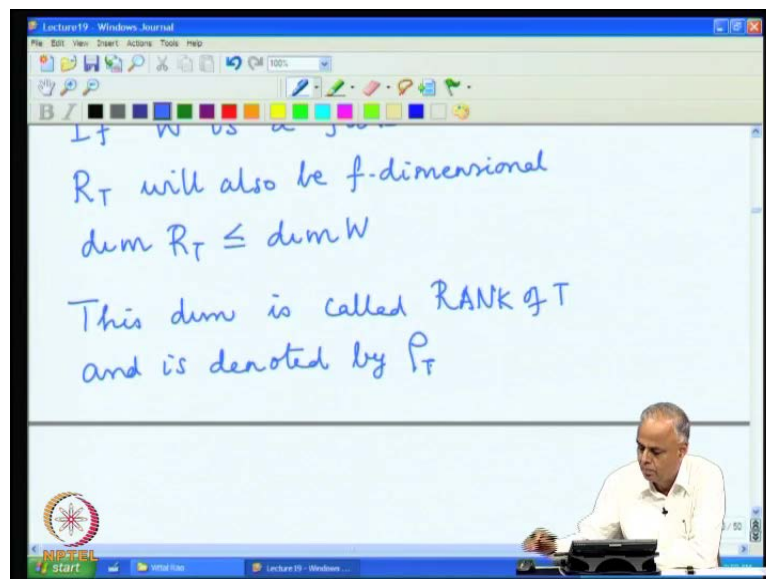 Lecture19 - Windows Journal
File Edit View Insert Actions Tools Help
100%
B I
If W is a
R_T will also be f-dimensional
dim R_T ≤ dim W
This dim is called RANK of T
and is denoted by ρ_T
/ 50
NPTEL
start Vittal Rao Lecture19 - Windows ...